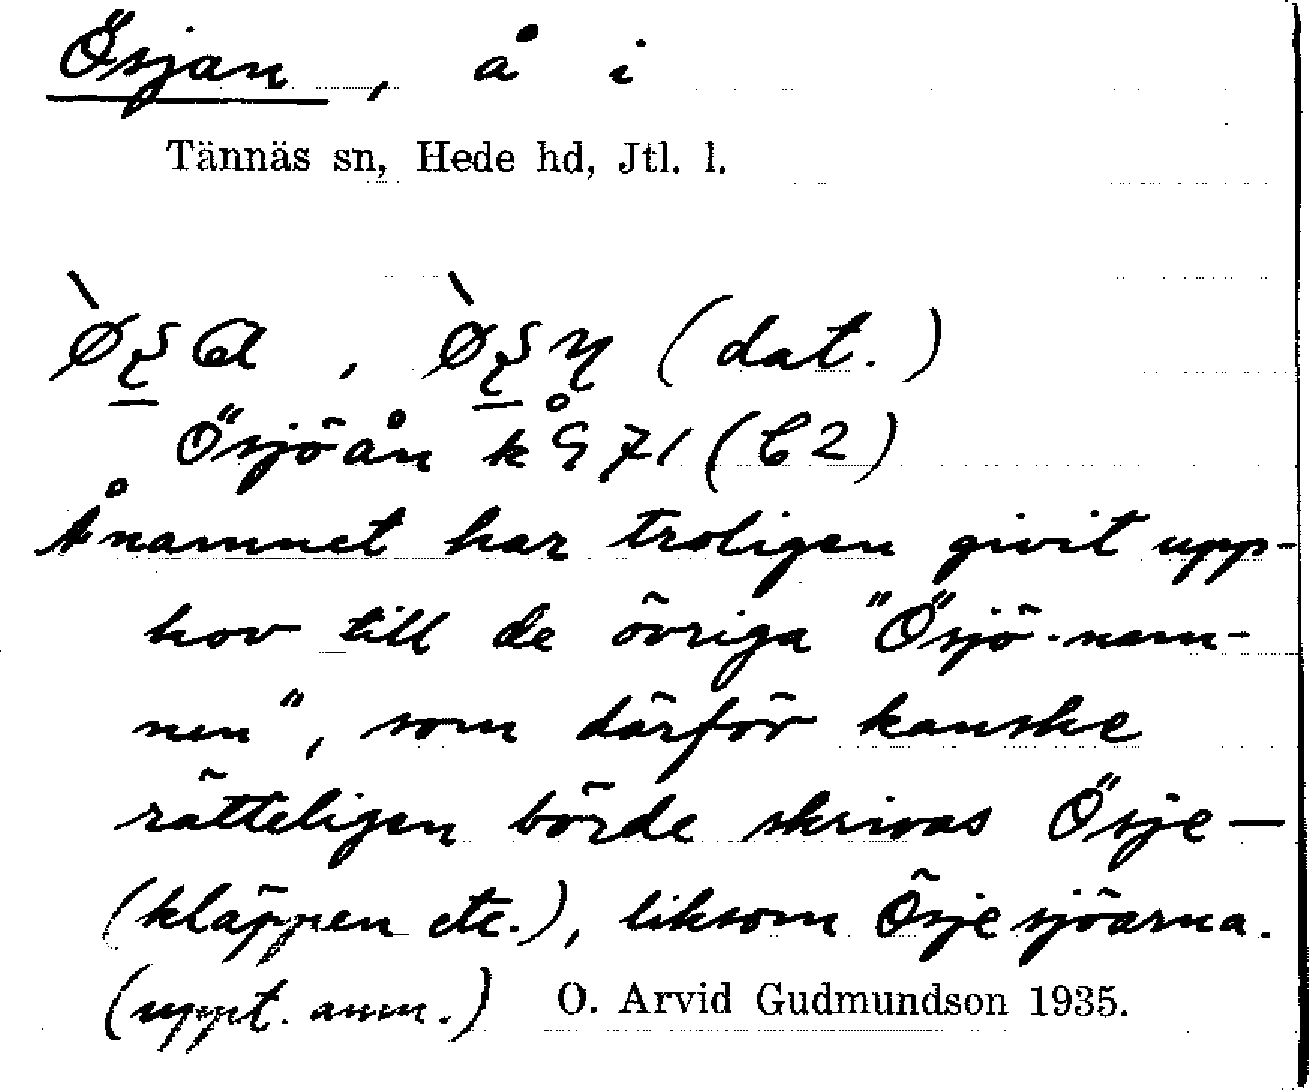 Ösjan, å i
Tännäs sn, Hede hd, Jtl. l.
(dat.)
Ösjöån k 71 (C2)
Ånamnet har troligen givit upp-
hov till de övriga "Ösjö-nam-
nen", som därför kanske
rätteligen börde skrivas Ösje—
(kläppen etc.), liksom Ösjesjöarna.
(uppt. anm.) O. Arvid Gudmundson 1935.